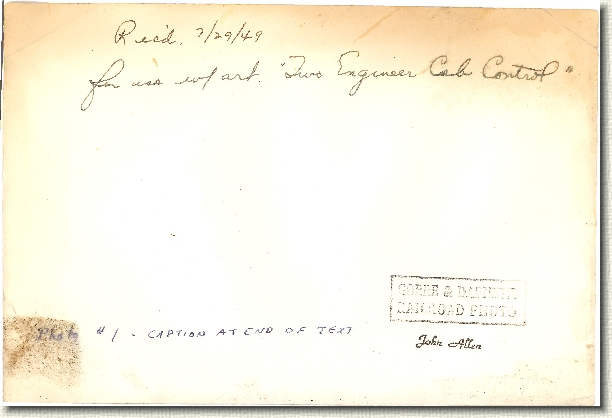 Rec'd. 7/29/49
for use w/ art. "Two Engineer Cab Control"
GORRE & DAPHETID
RAILROAD PHOTO
John Allen
Photo #1 - CAPTION AT END OF TEXT